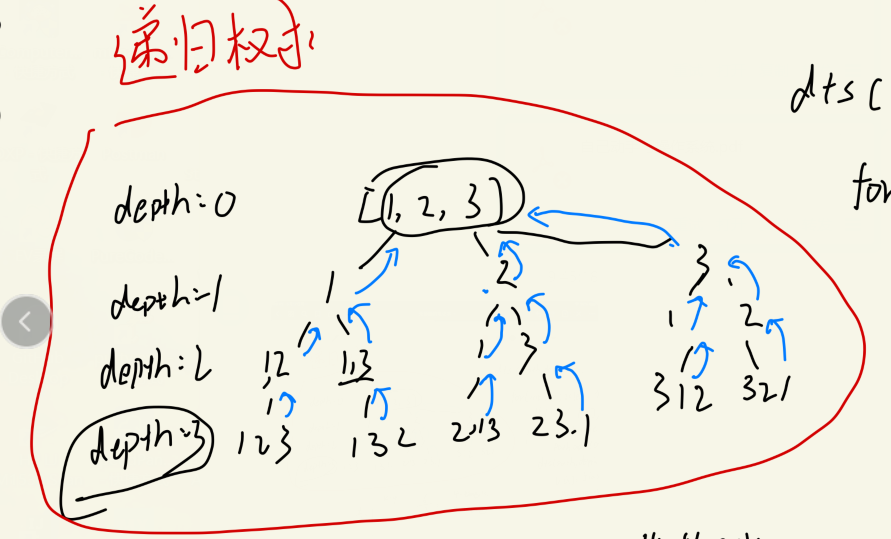 递归权求
dfs(
for
depth:0 [1, 2, 3]
depth:1 1 2 3
depth:2 1,2 1,3 1 3 1 2
312 321
depth:3 123 132 2.13 23.1